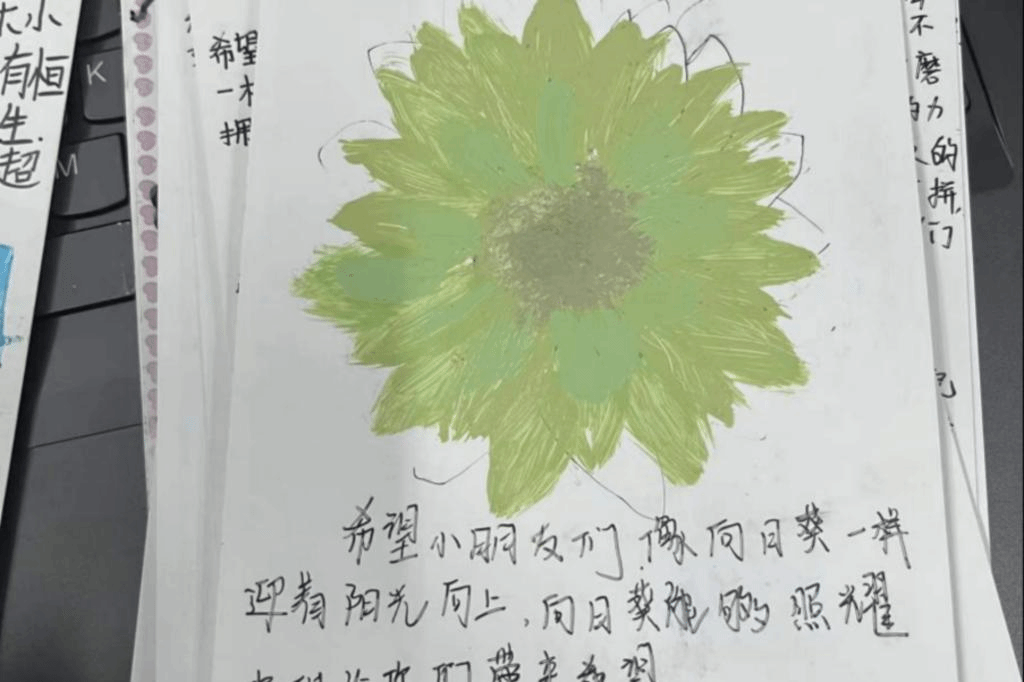 大小
有恒
生.
超
K
M
希望
一
拥
希望小朋友们,像向日葵一样
迎着阳光向上,向日葵能够照耀
们带来希望
不
磨
力
的
拼,
们